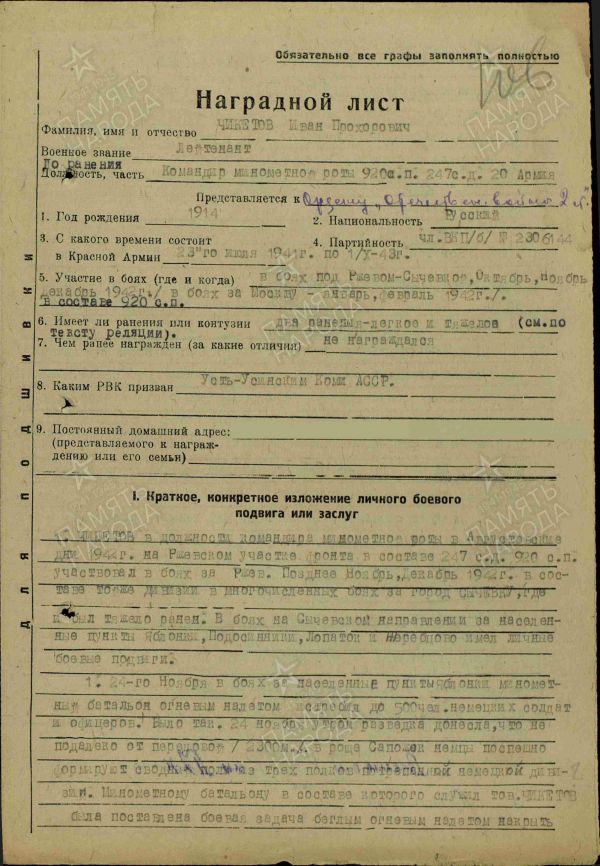 Обязательно все графы заполнять полностью
Наградной лист
Фамилия, имя и отчество ЧИКЕТОВ Иван Прохорович
Военное звание Лейтенант
До ранения
Должность, часть Командир минометной роты 920с.п. 247с.д. 20 Армия
Представляется к Ордену „Отечествен войны 2 ст."
1. Год рождения 1914 2. Национальность Русский
3. С какого времени состоит 4. Партийность чл.ВКП/б/ № 2306144
в Красной Армии 23"го июля 1941г. по 1/X-43г.
5. Участие в боях (где и когда) в боях под Ржевом-Сычевкой,Октябрь,ноябрь
декабрь 1942г./ в боях за Москву январь,февраль 1942г./.
в составе 920 с.п.
6. Имеет ли ранения или контузии два ранения-легкое и тяжелое (см.по
тексту реляции).
7. Чем ранее награжден (за какие отличия) не награждался
8. Каким РВК призван Усть-Усинским Коми АССР.
9. Постоянный домашний адрес:
(представляемого к награж-
дению или его семьи)
I. Краткое, конкретное изложение личного боевого
подвига или заслуг
т. ЧИКЕТОВ в должности командира минометной роты в Августовские
дни 1942г. на Ржевском участке фронта в составе 247 с.д. 920 с.п.
участвовал в боях за Ржев. Позднее Ноябрь,Декабрь 1942г. в сос-
таве тойже дивизии в многочисленных боях за город СЫЧЕВКУ, где
и был тяжело ранен. В боях на Сычевской направлении за населен-
ные пункты Яблонки, Подосинники, Лопаток и Жеребцово имел личные
боевые подвиги.
1. 24-го Ноября в боях за населенные пункты Яблонки миномет-
ный батальон огневым налетом истребил до 500чел.немецких солдат
и офицеров. Было так. 24 ноября утром разведка донесла,что не
подалеку от передовой / 2300м./ в роще Сапожек немцы поспешно
формируют сводный полк из трех полков немецкой диви-
зии. Минометному батальону в составе которого служил тов.ЧИКЕТОВ
была поставлена боевая задача беглым огневым налетом накрыть
ДЛЯ ПОДШИВКИ
ПАМЯТЬ НАРОДА